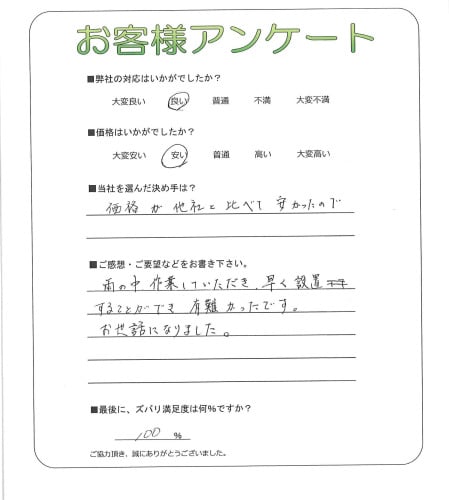 お客様アンケート
■弊社の対応はいかがでしたか?
大変良い 良い 普通 不満 大変不満
■価格はいかがでしたか?
大変安い 安い 普通 高い 大変高い
■当社を選んだ決め手は?
価格が他社と比べて安かったので
■ご感想・ご要望などをお書き下さい。
雨の中作業していただき、早く設置
することができ有難かったです。
お世話になりました。
■最後に、ズバリ満足度は何%ですか?
100 %
ご協力頂き、誠にありがとうございました。